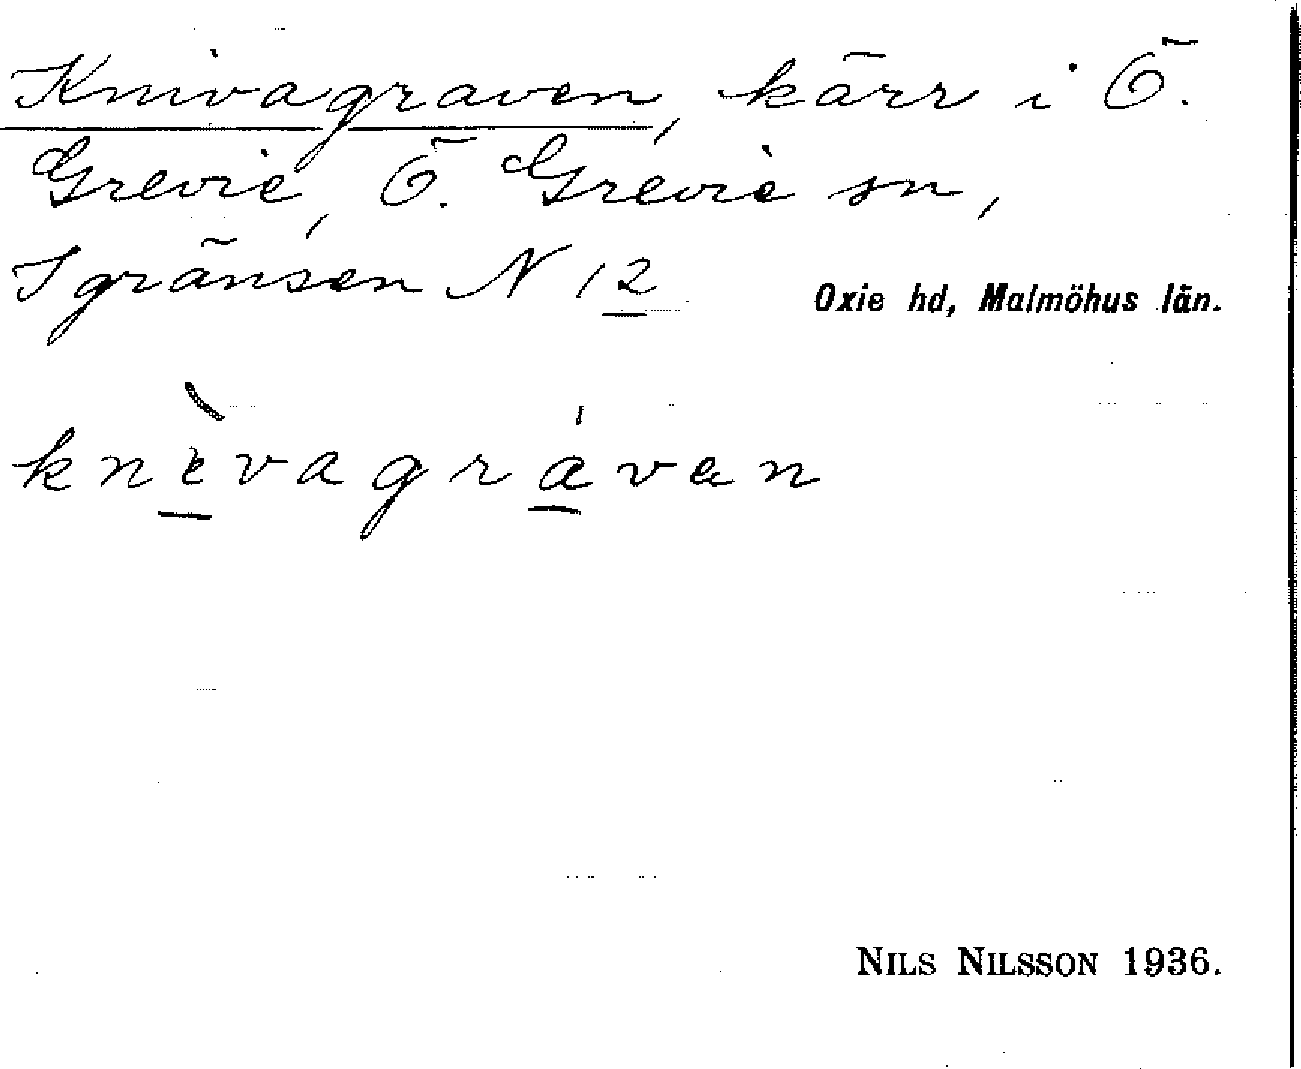 Knivagraven, kärr i Ö.
Grevie, Ö. Grevie sn,
I gränsen N 12
Oxie hd, Malmöhus län.
knìvagrávan
NILS NILSSON 1936.